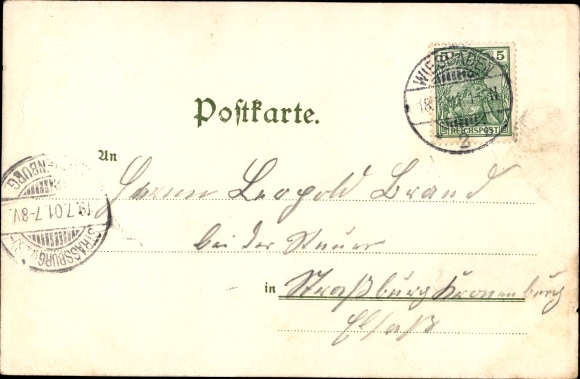 5 5
WIESBADEN
18.
2
REICHSPOST
Postkarte.
An
Herrn Leopold Brand
bei der Mauer
in Straßburg Kronenburg
Elsaß
19.7.01.7-8V.
STRASSBURG